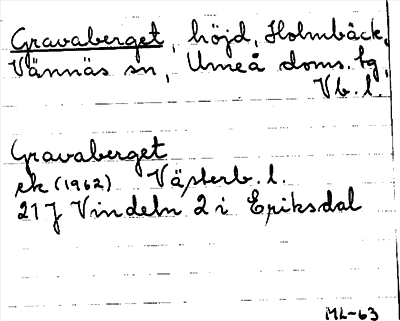 Gravaberget, höjd, Holmbäck,
Vännäs sn, Umeå doms. tg,
Vb. l.
Gravaberget
ek (1962) Västerb. l.
21J Vindeln 2 i Eriksdal
ML-63